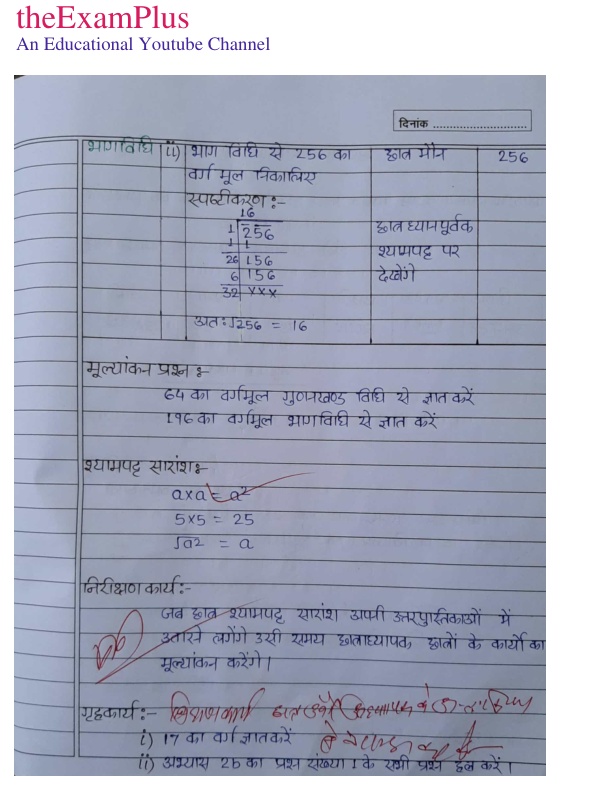 theExamPlus
An Educational Youtube Channel
दिनांक ............................
भागविधि ii) भाग विधि से 256 का छात्र मौन 256
वर्ग मूल निकालिए
स्पष्टीकरण :-
16
1 256 छात्र ध्यानपूर्वक
1 1 श्यामपट्ट पर
26 156 देखेंगे
6 156
32 xxx
अतः √256 = 16
मूल्यांकन प्रश्न :-
64 का वर्गमूल गुणनखण्ड विधि से ज्ञात करें
196 का वर्गमूल भागविधि से ज्ञात करें
श्यामपट्ट सारांश :-
a x a = a²
5 x 5 = 25
√a2 = a
निरीक्षण कार्य :-
जब छात्र श्यामपट्ट सारांश अपनी उत्तरपुस्तिकाओं में
उतारने लगेंगे उसी समय छात्राध्यापक छात्रों के कार्यों का
मूल्यांकन करेंगे।
गृहकार्य :-
i) 17 का वर्ग ज्ञात करें
ii) अभ्यास 2b का प्रश्न संख्या 1 के सभी प्रश्न हल करें।